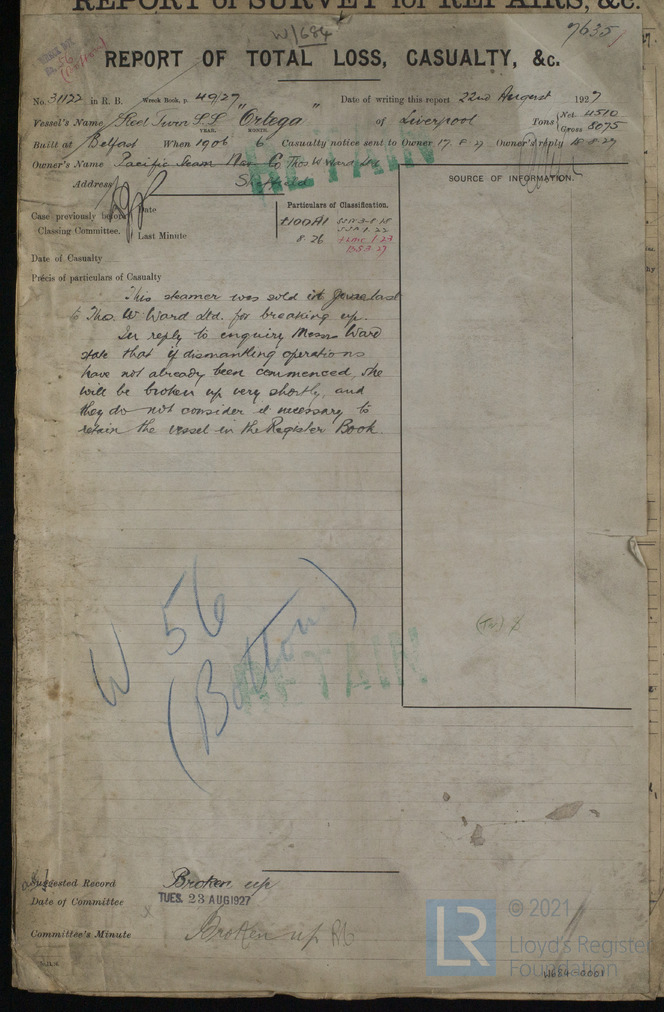 REPORT of SURVEY for REPAIRS, &c.
W/684
7635
REPORT OF TOTAL LOSS, CASUALTY, &c.
No. 31122 in R. B. Wreck Book, p. 49/27 Date of writing this report 22nd August 1927
Vessel's Name Steel Twin SS "Ortega" of Liverpool Tons Net 4510 Gross 8075
YEAR. MONTH.
Built at Belfast When 1906 6 Casualty notice sent to Owner 17. 8. 27 Owner's reply 18. 8. 27
Owner's Name Pacific Steam Nav Co Thos W Ward Ltd
Address Sheffield
RETAIN
SOURCE OF INFORMATION.
Case previously before Classing Committee.
Date
Last Minute
Particulars of Classification.
+100A1
8.26
Date of Casualty
Précis of particulars of Casualty
This steamer was sold in June last
to Thos. W Ward Ltd. for breaking up.
In reply to enquiry Messrs Ward
state that if dismantling operations
have not already been commenced, she
will be broken up very shortly, and
they do not consider it necessary to
retain the vessel in the Register Book.
W 56
(Botton)
RETAIN
Suggested Record Broken up
Date of Committee TUES. 23 AUG 1927
Committee's Minute Broken up
LR
© 2021
Lloyd's Register
Foundation
W684-0001